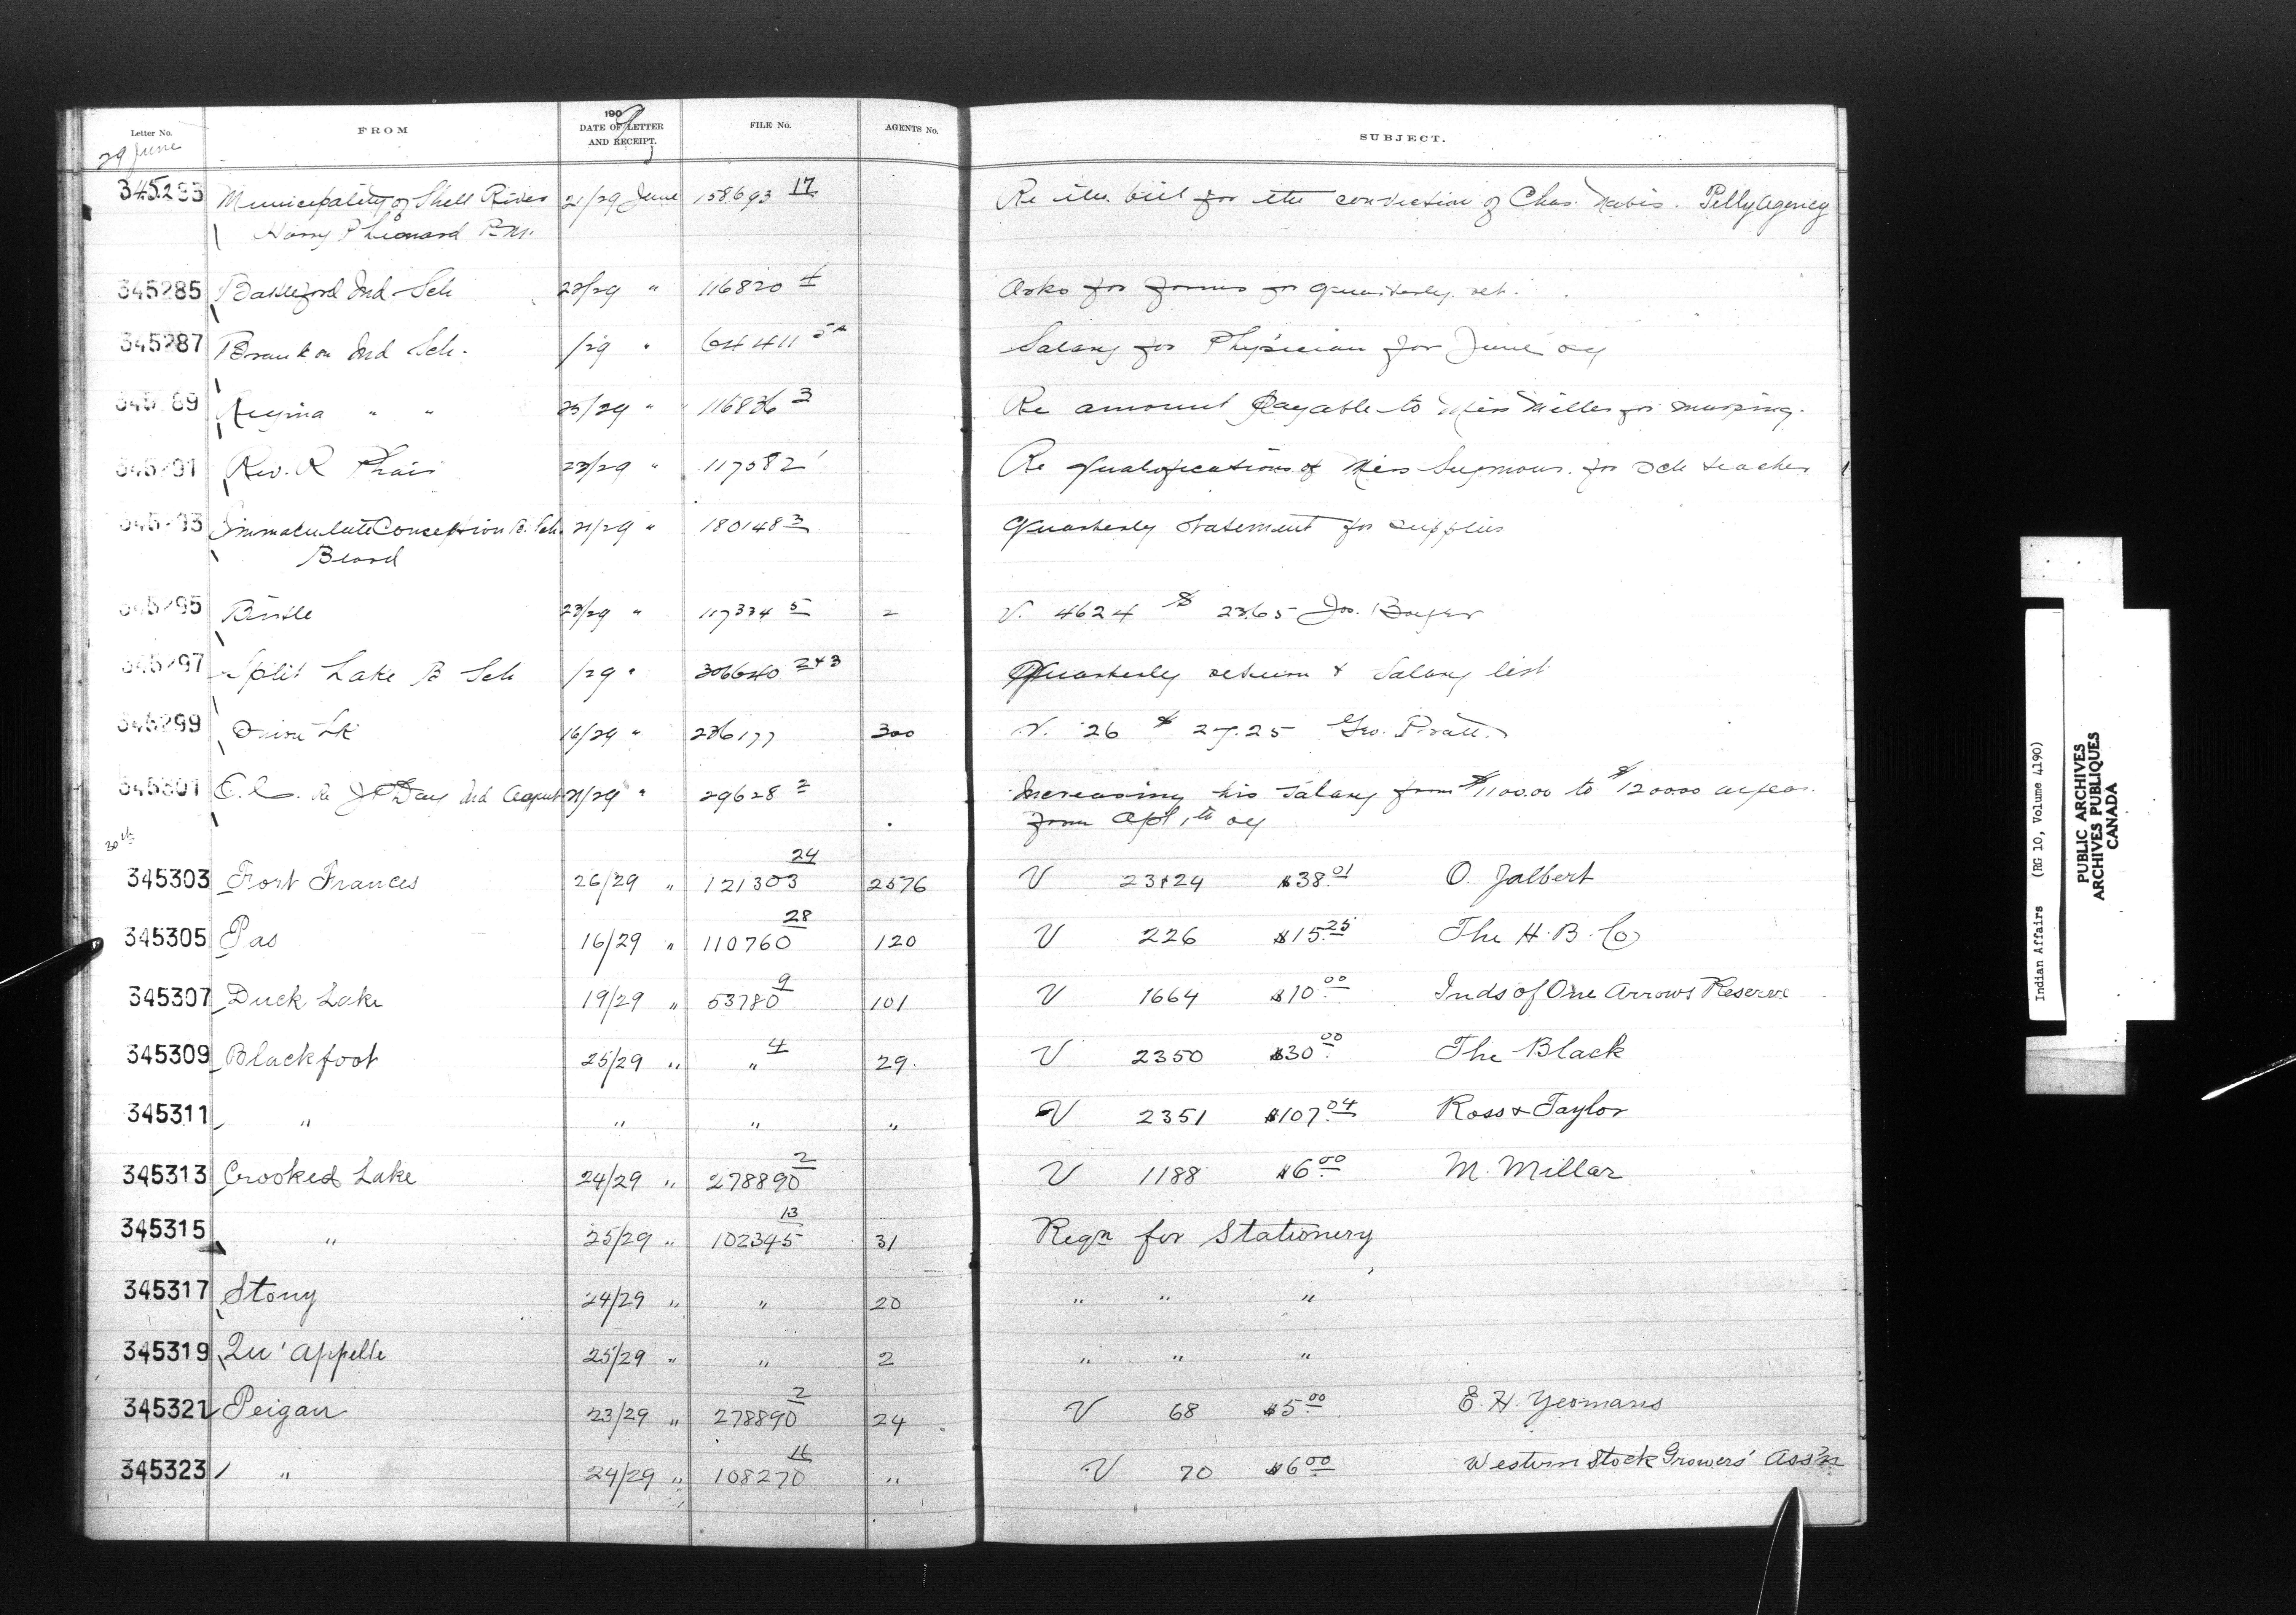 Letter No. FROM 1909 DATE OF LETTER AND RECEIPT. FILE No. AGENTS No. SUBJECT.
29 June
345283 Municipality of Shell River 21/29 June 158693 17 Re bill for the conviction of Chas. Pelly Agency
Harry P Leonard P.M.
345285 Battleford Ind Sch 23/29 " 116820 4 Asks for forms for quarterly ret.
345287 Brandon Ind Sch. /29 " 64411 5A Salary for Physician for June 09
345289 Regina " " 23/29 " 116836 3 Re amount payable to Miss Miller for nursing.
345291 Rev. R Phair 23/29 " 117582 1 Re qualifications of Miss Seymour for sch teacher
345293 Immaculate Conception B. Sch. 21/29 " 180148 3 Quarterly Statement for supplies
345295 Birtle 23/29 " 117334 5 2 V. 4624 $ 23.65 Jos. Boyer
345297 Split Lake B Sch /29 " 306640 2+3 Quarterly return & Salary list
345299 Onion Lk 16/29 " 236177 300 V. 26 $ 27.25 Geo. Pratt
345301 O.C. Re J P Day Ind Agent 21/29 " 29628 2 Increasing his salary from $1100.00 to $1200.00 a year
from Apl 1st 09
30th
345303 Fort Frances 26/29 " 121303 24 2576 V 23+24 $38.01 O. Jalbert
345305 Pas 16/29 " 110760 28 120 V 226 $15.25 The H.B. Co
345307 Duck Lake 19/29 " 53780 9 101 V 1664 $10.00 Inds of One Arrows Reserve
345309 Blackfoot 25/29 " " 4 29. V 2350 $30.00 The Black
345311 " " " " V 2351 $107.04 Ross & Taylor
345313 Crooked Lake 24/29 " 278890 2 V 1188 $6.00 M. Millar
345315 " 25/29 " 102345 13 31 Reqn for Stationery
345317 Stony 24/29 " " 20 " " "
345319 Qu'appelle 25/29 " " 2 " " "
345321 Peigan 23/29 " 278890 2 24 V 68 $5.00 E. H. Yeomans
345323 " 24/29 " 108270 16 " V 70 $6.00 Western Stock Growers' Ass'n
Indian Affairs (RG 10, Volume 4190)
PUBLIC ARCHIVES
ARCHIVES PUBLIQUES
CANADA